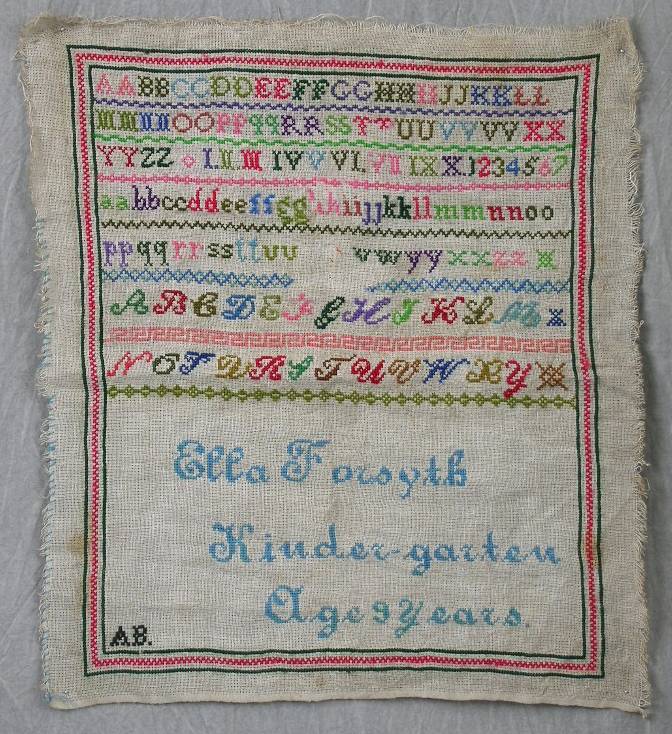 AABBCCDDEEFFGGHHIIJJKKLL
MMNNOOPPQQRRSSTTUUVVVVXX
YYZZ I II III IV V VI VII IX X 1234567
aabbccddeeffgghhiijjkkllmmnnoo
ppqqrrssttuu vvwyyxxzz
ABCDEFGHIJKLM
NOPQRSTUVWXY
Ella Forsyth
Kinder-garten
Age 9 Years.
AB.